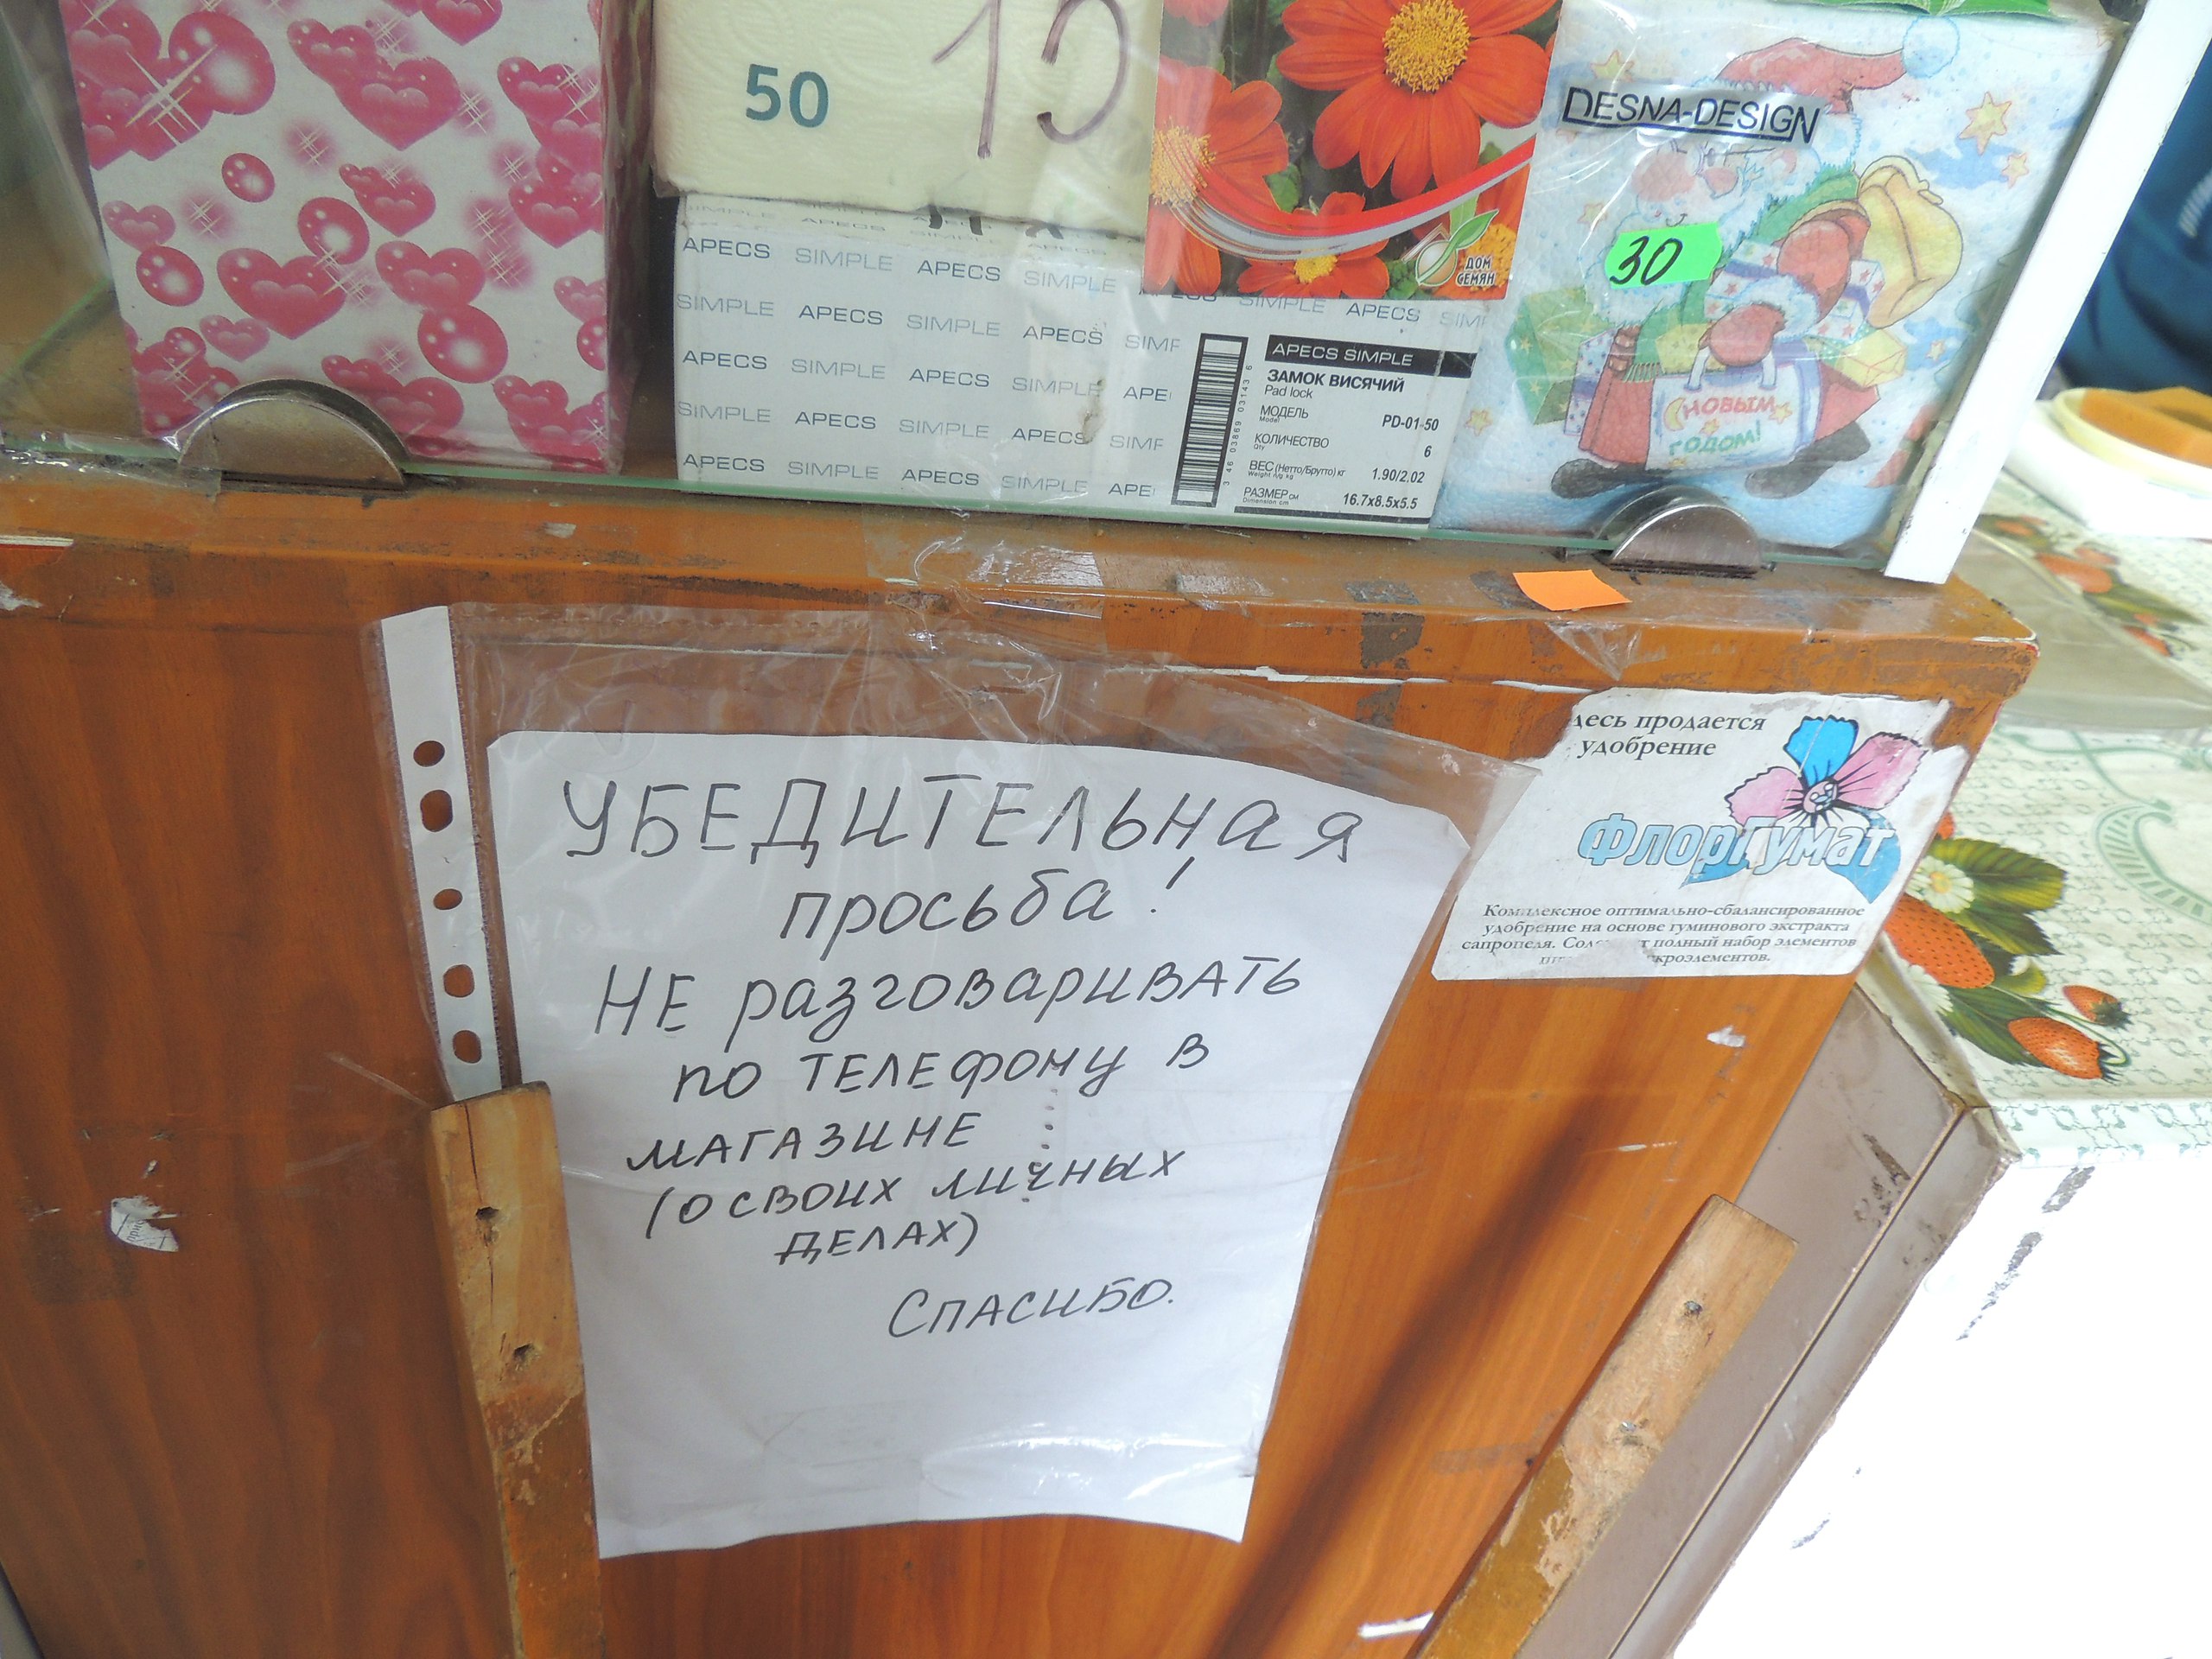 50
15
DESNA-DESIGN
30
С НОВЫМ
ГОДОМ!
ДОМ
СЕМЯН
APECS SIMPLE APECS SIMPLE
SIMPLE APECS SIMPLE APECS
APECS SIMPLE APECS SIMPLE
SIMPLE APECS SIMPLE APECS
APECS SIMPLE APECS SIMPLE
SIMPLE APECS
APECS SIMPLE
ЗАМОК ВИСЯЧИЙ
Pad lock
МОДЕЛЬ PD-01-50
Model
КОЛИЧЕСТВО 6
Qty
ВЕС (Нетто/Брутто) кг 1.90/2.02
РАЗМЕР см 16.7x8.5x5.5
Dimension cm
десь продается
удобрение
ФлорГумат
Комплексное оптимально-сбалансированное
удобрение на основе гуминового экстракта
сапропеля. полный набор элементов
кроэлементов.
УБЕДИТЕЛЬНАЯ
просьба!
НЕ разговаривать
по телефону в
магазине
(о своих личных
делах)
Спасибо.